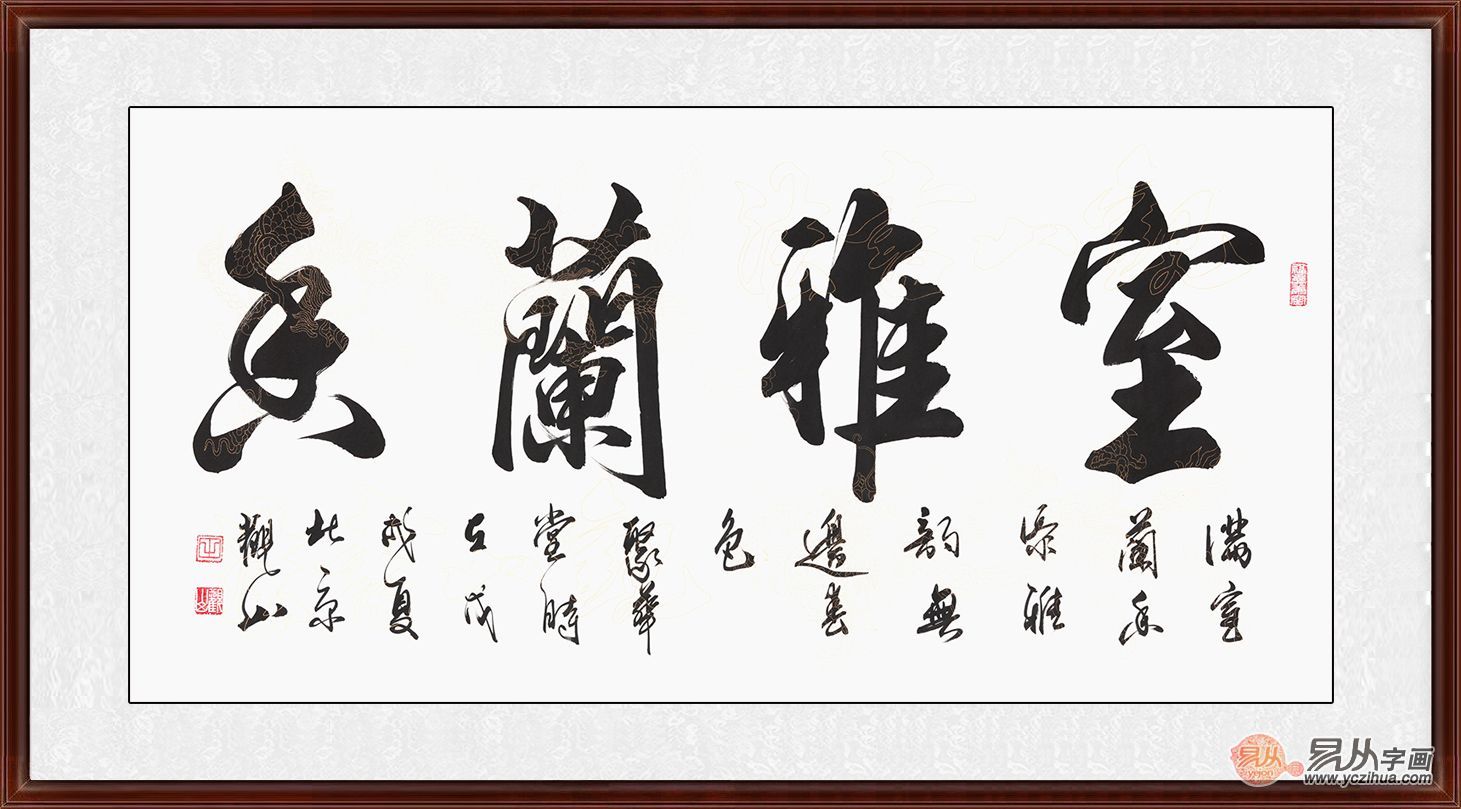 室雅蘭香
滿室
蘭香
添雅
韵無
邊春
色
聚華
堂時
在戊
戌夏
北京
觀山
易从
yicon
易从字画
www.yczihua.com